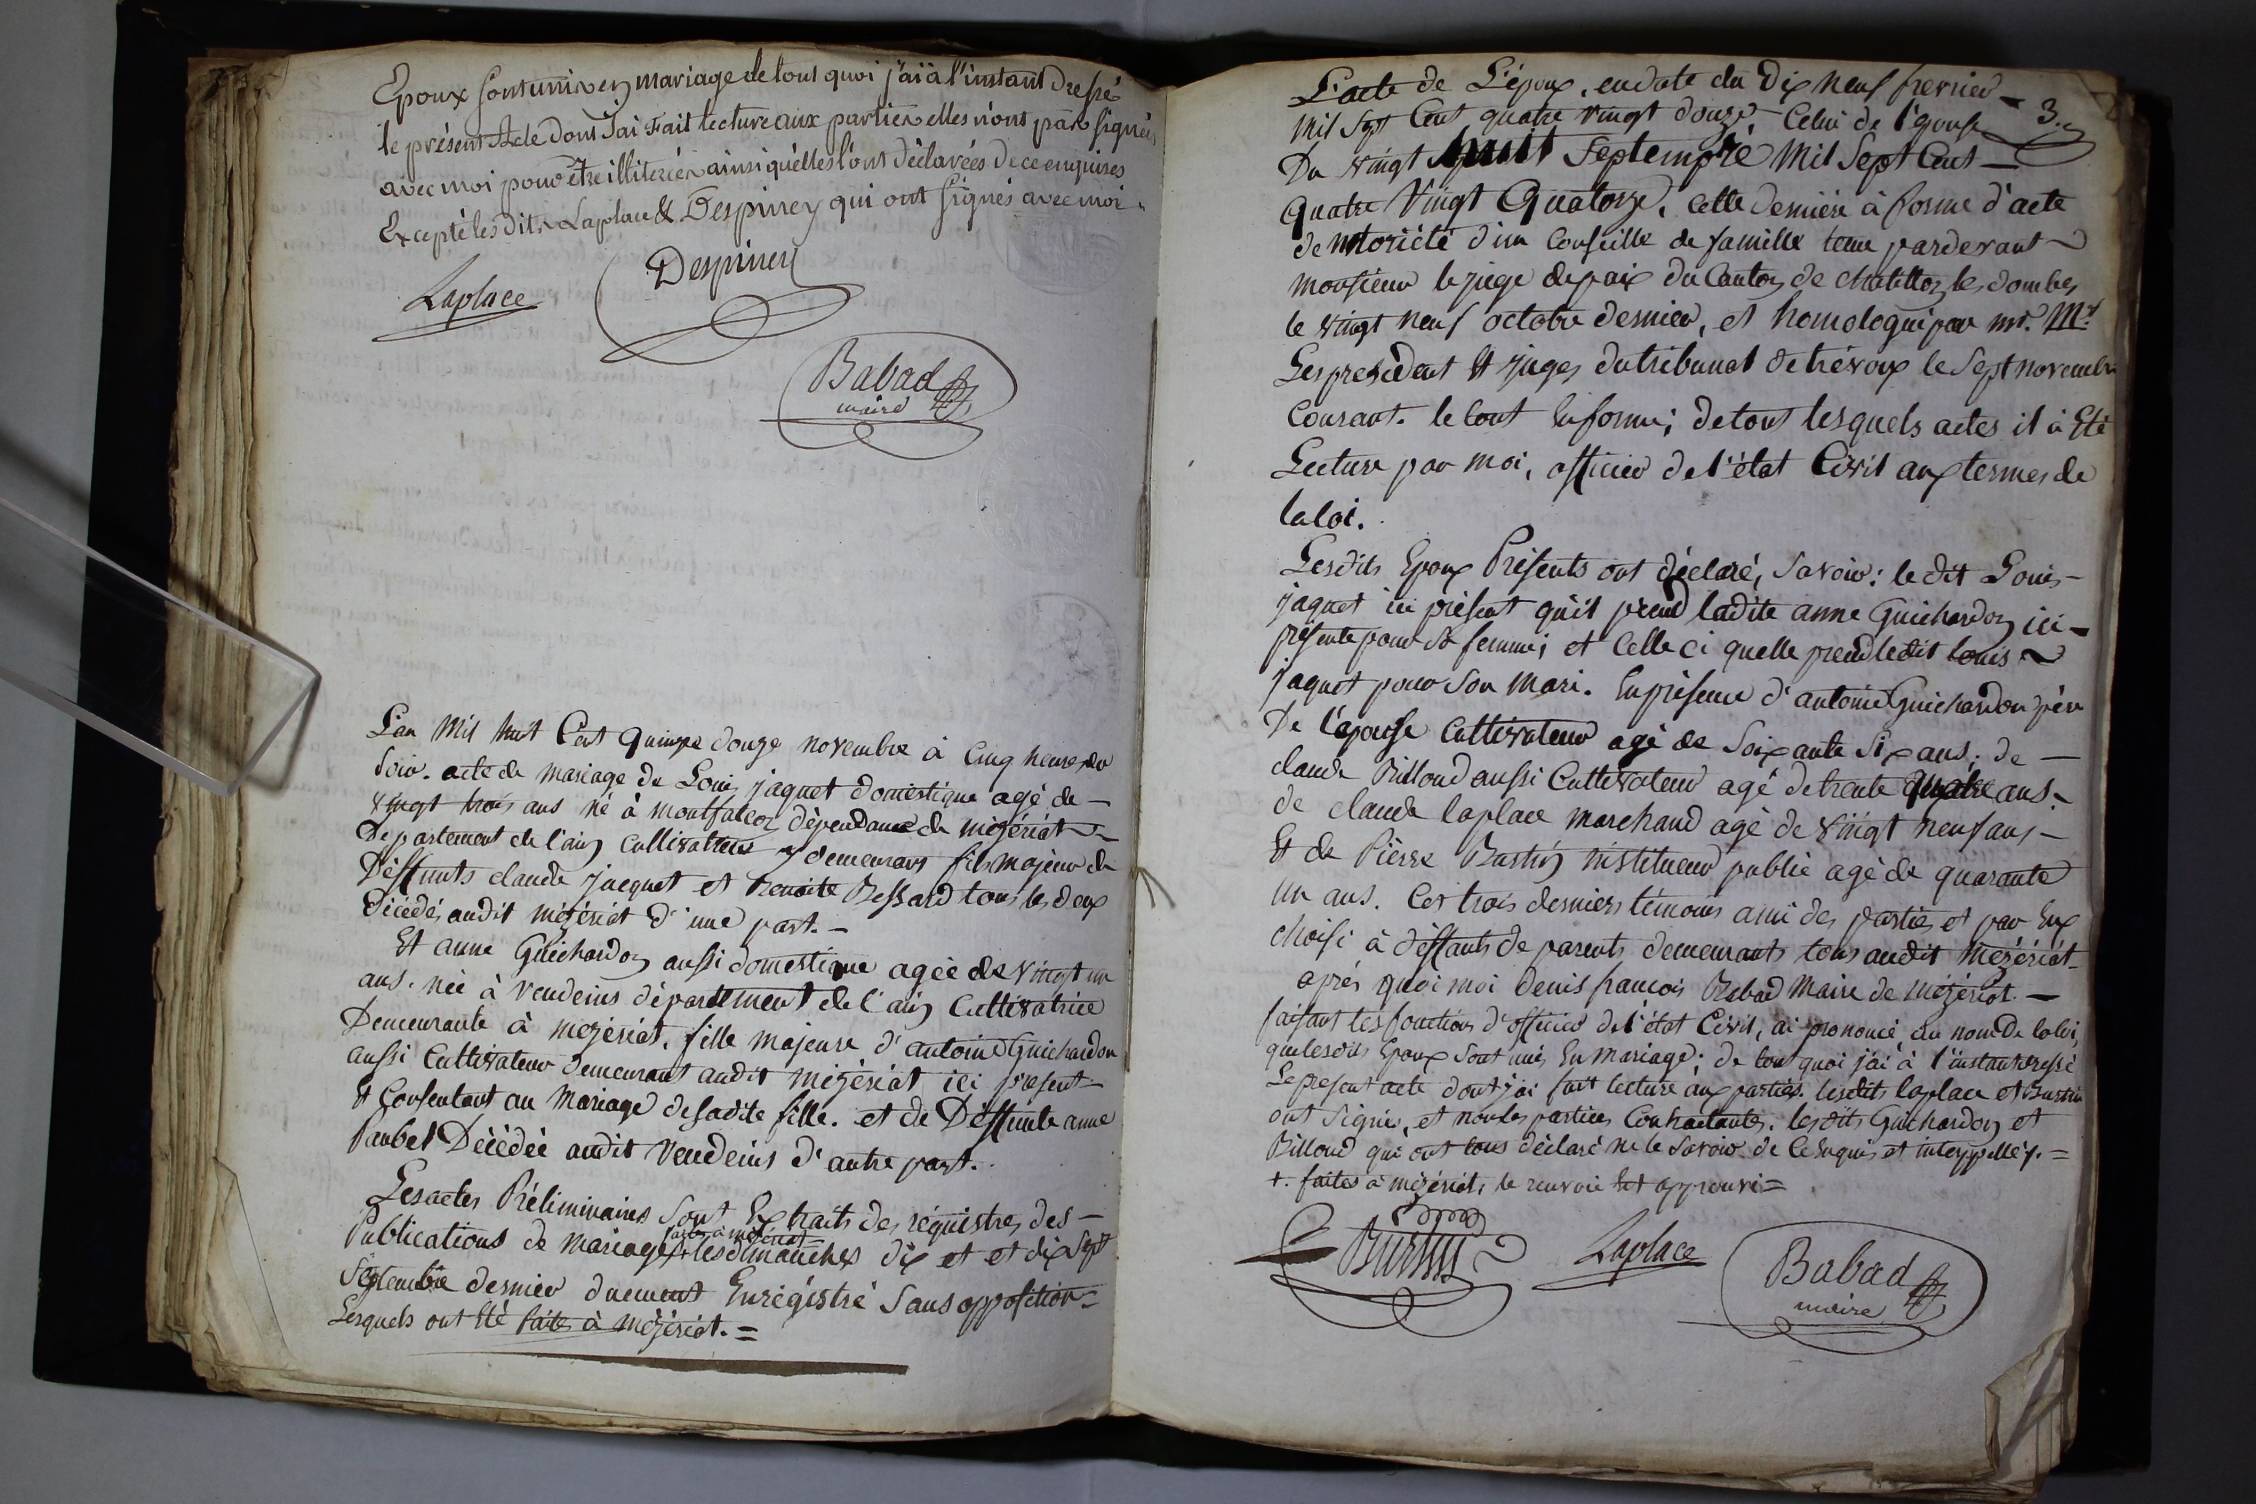 Epoux sont unis en mariage de tout quoi j'ai à l'instant dressé
le présent Acte dont J'ai Fait lecture aux parties elles n'ont pas signées
avec moi pour être illiterées ainsi quelles l'ont déclarées de ce enquises
Excepté lesdits Laplace & Despiney qui ont signés avec moi
Despiney
Laplace
Babad
maire
L'an Mil huit Cent quinze douze novembre à Cinq heures du
soir. acte de mariage de Louis jaquet domestique agé de —
vingt trois ans né à montfalcon dépendance de mézériat —
Département de l'ain cultivateur y demeurant fils majeur de
Déffunts claude jacquet et benoite Bessard tous les deux
décédés audit mézériat d'une part. —
Et anne Guichardon aussi domestique agée de vingt un
ans. née à vendeins département de l'ain Cultivatrice
Demeurante à mézériat, fille majeure d'antoine Guichardon
aussi Cultivateur demeurant audit mézériat ici présent —
Et Consentant au mariage de sadite fille. et de Déffunte anne
Paubel Décédée audit Vendeins d'autre part.
Les actes Préliminaires sont Extraits des régistres des —
Publications de mariages + les dimanches dix et et dix sept
faites à mézériat
Septembre dernier duement Enrégistré sans opposition =
Lesquels ont été faites à mézériat. =
3.
L'acte de L'époux, en date du Dix neuf fevrier —
Mil Sept Cent quatre vingt douze Celui de l'épouse
Du vingt huit Septembre Mil Sept Cent —
Quatre Vingt Quatorze, cette dernière à forme d'acte
de notoriété d'un Conseille de famille tenu pardevant
monsieur le juge de paix du Canton de Chatillon les dombes
le vingt neuf octobre dernier, et homologué par mr. Mrs
Les president & juges du tribunal de trévoux le sept novembre
Courant. le tout en forme; de tout lesquels actes il à été
Lecture par moi, officier de l'état Civil aux termes de
la loi.
Lesdits Epoux Présents ont déclaré, Savoir: le dit Louis —
jaquet ici présent qu'il prend ladite anne Guichardon ici —
présente pour sa femme; et Celle ci quelle prend ledit louis
jaquet pour son mari. En présence d'antoine Guichardon père
De l'épouse Cultivateur agé de soixante six ans; de —
claude Billoud aussi Cultivateur agé de trente quatre ans. —
de claude laplace marchand agé de vingt neuf ans —
Et de Pièrre Bustin instituteur public agé de quarante
un ans. Ces trois derniers témoins ami des parties et par Eux
choisi à déffauts de parents demeurants tous audit mézériat
après quoi moi denis francois Babad Maire de mézériat. —
faisant les fonctions d'officier de l'état Civil, ai prononcé, au nom de la loi,
que lesdits Epoux sont unis En mariage; de tout quoi j'ai à l'instant dressé
Le present acte dont j'ai fait lecture aux parties. lesdits laplace et Bustin
ont signés, et non les parties Contractantes. lesdits Guichardon et
Billoud qui ont tous déclaré ne le savoir de Ce Enquis et interppellés. =
+. faites à mézériat, le renvoie est approuvé =
Laplace
Babad
maire